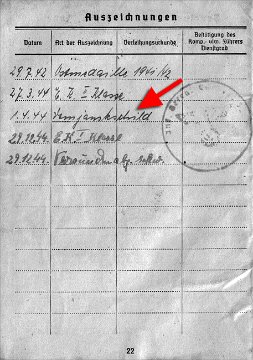 Auszeichnungen
Datum Art der Auszeichnung Verleihungsurkunde Bestätigung des Komp.- usw. Führers Dienstgrad
29.7.42 Ostmedaille 1941/42
27.3.44 E.K. II Klasse
1.4.44
29.12.44 E.K. I Klasse
29.12.44 Verwundetenabz.
22